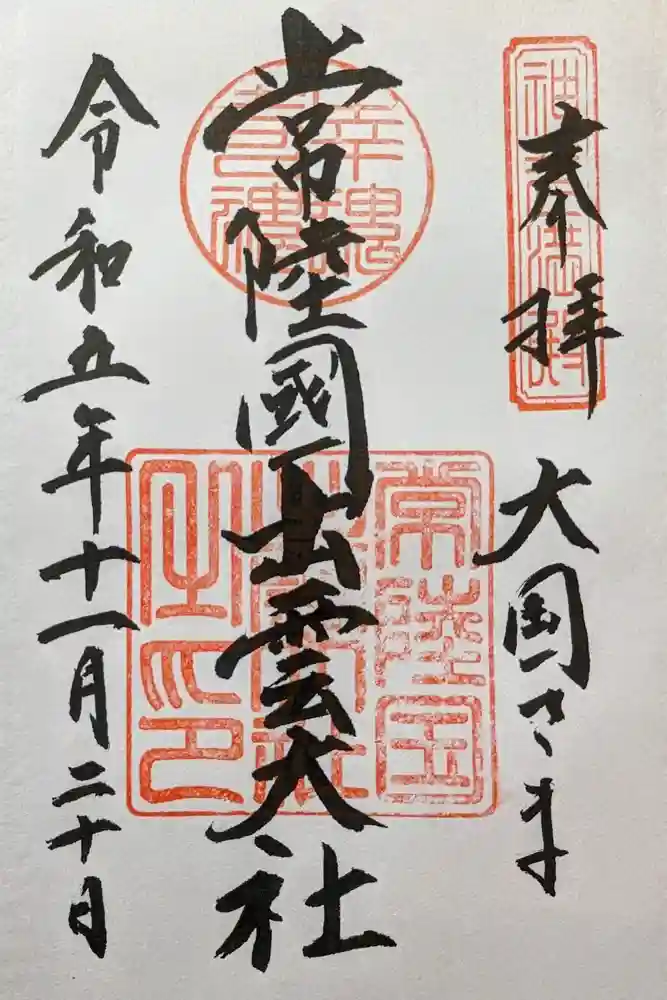 奉拝
大国さま
常陸國出雲大社
令和五年十一月二十日
幸魂
奇魂
常陸国
出雲大社
之印